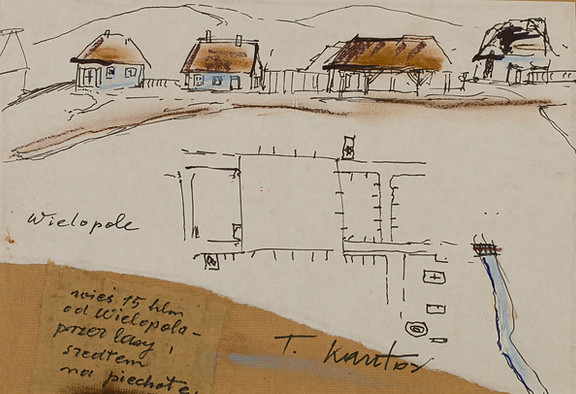 Wielopole
wieś 15 klm
od Wielopola -
przez lasy i
szedłem
na piechotę,
T. Kantor